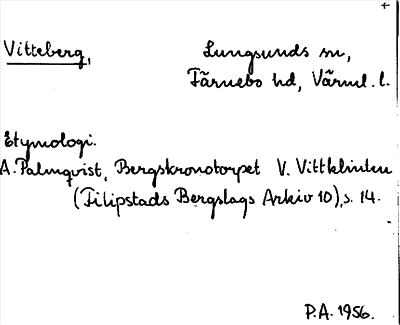 +
Vitteberg, Lungsunds sn,
Färnebo hd, Värml. l.
Etymologi.
A. Palmqvist, Bergskronotorpet V. Vittklinten
(Filipstads Bergslags Arkiv 10), s. 14.
P.A. 1956.